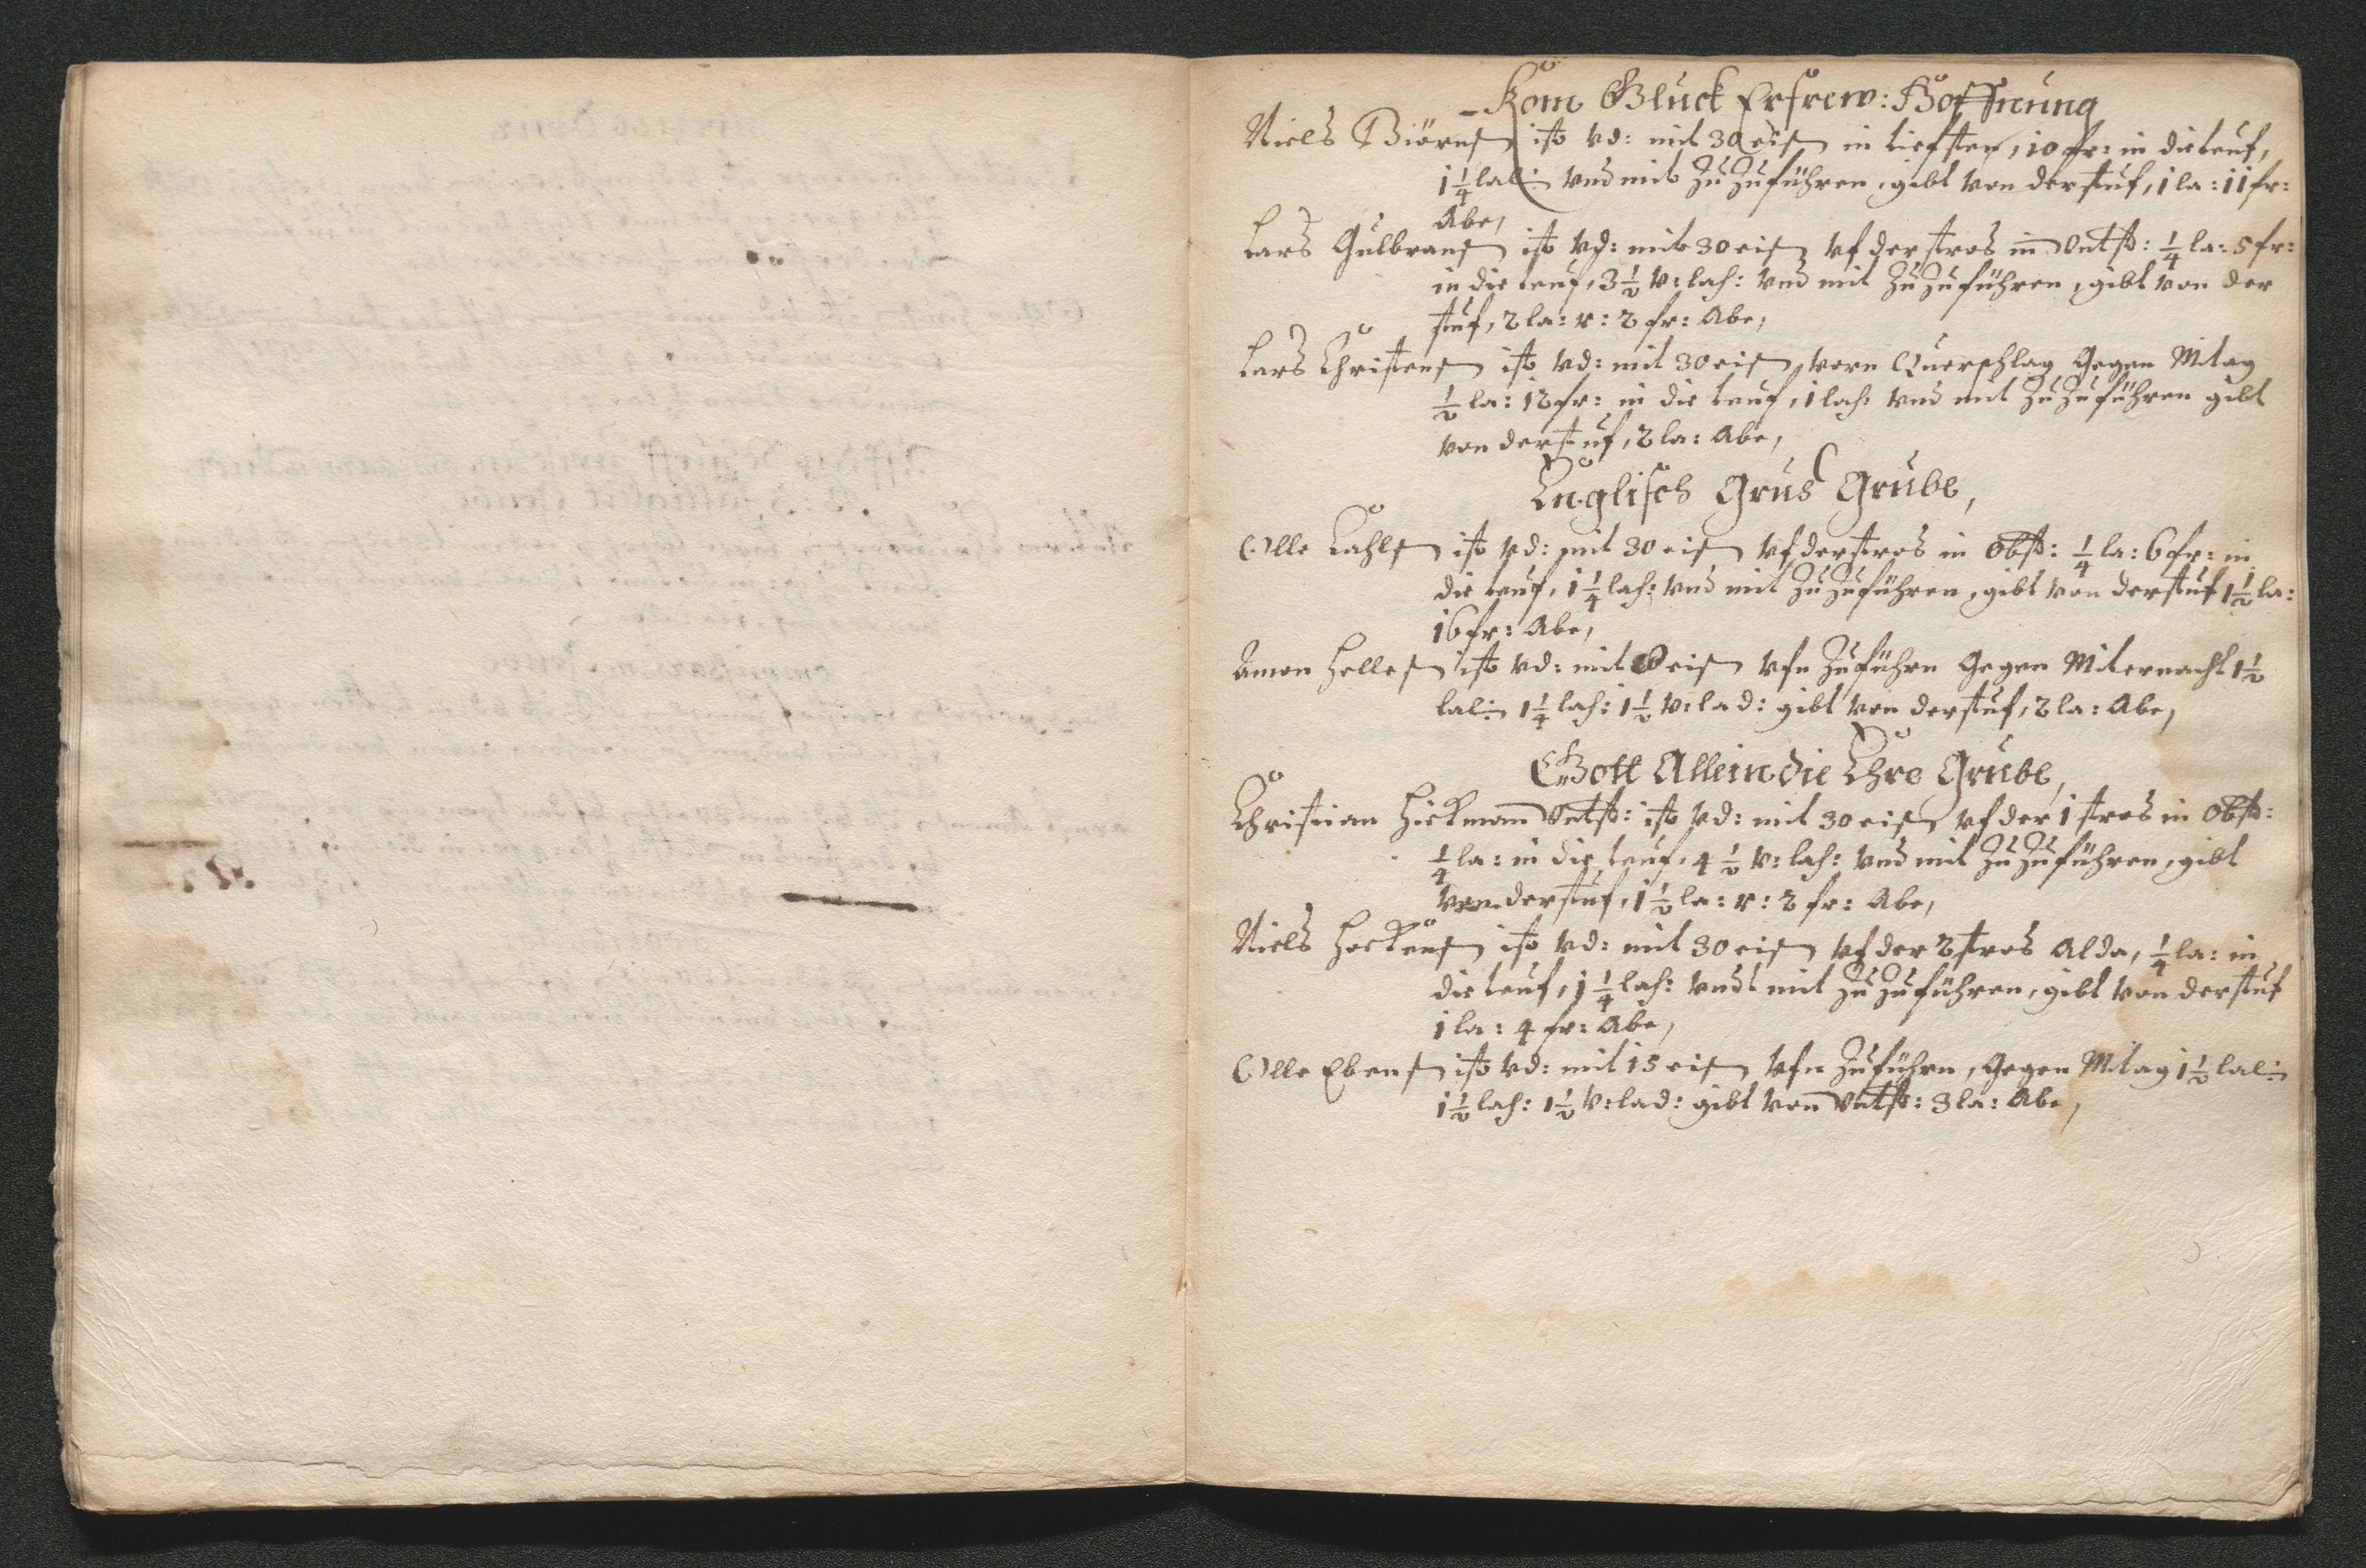 Kom Gluck Erfrew: Hoffnung
Niels Biörnsen ist vd: mit 30 eisen in tiefsten, 10 fr: in die teuf,
1 1/4 lal: vnd mit zu zuführen, gibt von der stuf, 1 la: 11 fr:
Abe,
Lars Gulbransen ist vd: mit 30 eisen vf der stros in Ontst: 1/4 la: 5 fr:
in die teuf, 3 1/2 v: lach: vnd mit zu zuführen, gibt von der
stuf, 2 la: r: 2 fr: Abe,
Lars Christensen ist vd: mit 30 eisen, vorn Querschlag gegen Mitag
1/2 la: 12 fr: in die teuf, 1 lach: vnd mit zu zuführen gibt
von der stuf, 2 la: Abe,
Englisch Grus Grube,
Olle Kahlsen ist vd: mit 30 eisen vf der stros in Obst: 1/4 la: 6 fr: in
die teuf, 1 1/4 lach: vnd mit zu zuführen, gibt von der stuf 1 1/2 la:
16 fr: Abe,
Amon Hellesen ist vd: mit eisen vfn zuführn gegen Miternacht 1 1/2
lal: 1 1/4 lach: 1 1/2 v: lad: gibt von der stuf, 2 la: Abe,
Gott Allein die Ehre Grube,
Christian Hickman Ontst: ist vd: mit 30 eisen vf der 1 stros in Obst:
1/4 la: in die teuf, 4 1/2 v: lach: vnd mit zu zuführen, gibt
von der stuf, 1 1/2 la: r: 2 fr: Abe,
Niels Hockensen ist vd: mit 30 eisen vf der 2 stros Alda, 1/4 la: in
die teuf, 1 1/4 lach: vndt mit zu zuführen, gibt von der stuf
1 la: 4 fr: Abe,
Olle Ebensen ist vd: mit 15 eisen vfn zuführn, gegen Mitag 1 1/2 lal:
1 1/2 lach: 1 1/2 v: lad: gibt von Ontst: 3 la: Abe,